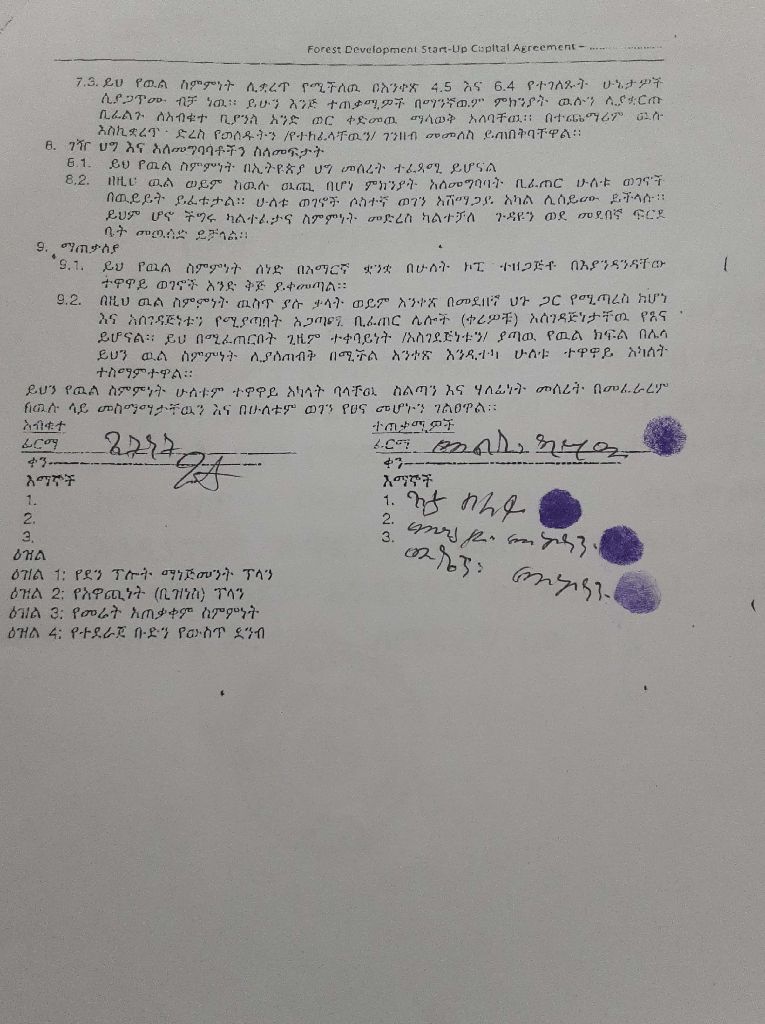 Forest Development Start-Up Capital Agreement – ......................
7.3. ይህ የዉል ስምምነት ሊቋረጥ የሚችለዉ በአንቀጽ 4.5 እና 6.4 የተገለጹት ሁኔታዎች
ሲያጋጥሙ ብቻ ነዉ። ይሁን እንጅ ተጠቃሚዎች በማንኛዉም ምክንያት ዉሉን ሊያቋርጡ
ቢፈልጉ ለአብቁተ ቢያንስ አንድ ወር ቀድመዉ ማሳወቅ አለባቸዉ። በተጨማሪም ዉሉ
እስኪቋረጥ ድረስ የወሰዱትን /የተከፈላቸዉን/ ገንዘብ መመለስ ይጠበቅባቸዋል።
8. ገዥ ህግ እና አለመግባባቶችን ስለመፍታት
8.1. ይህ የዉል ስምምነት በኢትዮጵያ ህግ መሰረት ተፈጻሚ ይሆናል
8.2. በዚህ ዉል ወይም ከዉሉ ዉጪ በሆነ ምክንያት አለመግባባት ቢፈጠር ሁለቱ ወገኖች
በዉይይት ይፈቱታል። ሁለቱ ወገኖች ሶስተኛ ወገን አሸማጋይ አካል ሊሰይሙ ይችላሉ።
ይህም ሆኖ ችግሩ ካልተፈታና ስምምነት መድረስ ካልተቻለ ጉዳዩን ወደ መደበኛ ፍርድ
ቤት መዉሰድ ይቻላል።
9. ማጠቃለያ
9.1. ይህ የዉል ስምምነት ሰነድ በአማርኛ ቋንቋ በሁለት ኮፒ ተዘጋጅቶ በእያንዳንዳቸው
ተዋዋይ ወገኖች አንድ ቅጅ ይቀመጣል።
9.2. በዚህ ዉል ስምምነት ዉስጥ ያሉ ቃላት ወይም አንቀጽ በመደበኛ ህጉ ጋር የሚጣረስ ከሆነ
እና አስገዳጅነቱን የሚያጣበት አጋጣሚ ቢፈጠር ሌሎች (ቀሪዎቹ) አስገዳጅነታቸዉ የጸና
ይሆናል። ይህ በሚፈጠርበት ጊዜም ተቀባይነት /አስገደጅነቱን/ ያጣዉ የዉል ክፍል በሌላ
ይህን ዉል ስምምነት ሊያስጠብቅ በሚችል አንቀጽ እንዲተካ ሁለቱ ተዋዋይ አካለት
ተስማምተዋል።
ይህን የዉል ስምምነት ሁለቱም ተዋዋይ አካላት ባላቸዉ ስልጣን እና ሃላፊነት መሰረት በመፈራረም
በዉሉ ላይ መስማማታቸዉን እና በሁለቱም ወገን የፀና መሆኑን ገልፀዋል።
አብቁተ ተጠቃሚዎች
ፊርማ ፊርማ
ቀን ቀን
እማኞች እማኞች
1. 1.
2. 2.
3. 3.
ዕዝል
ዕዝል 1: የደን ፕሎት ማነጅመንት ፕላን
ዕዝል 2: የአዋጪነት (ቢዝነስ) ፕላን
ዕዝል 3: የመሬት አጠቃቀም ስምምነት
ዕዝል 4: የተደራጀ ቡድን የውስጥ ደንብ